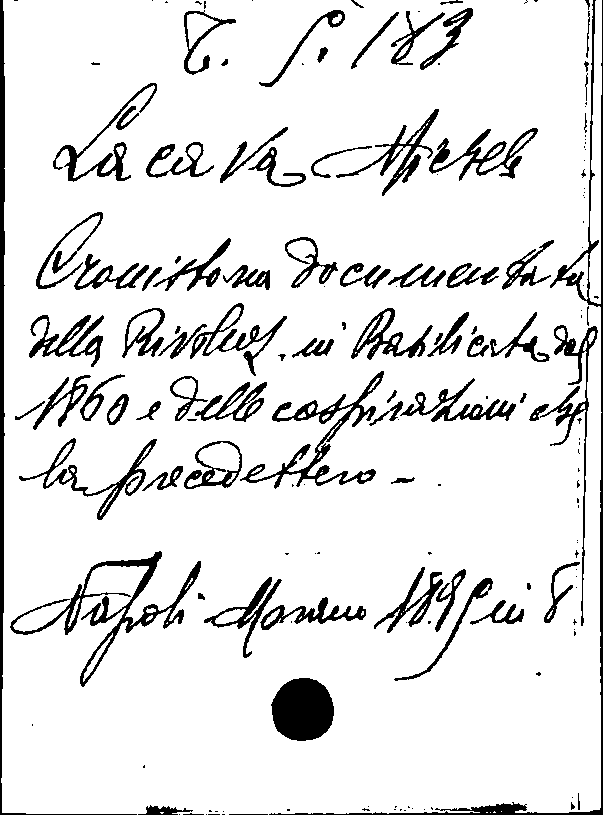 T. S. 183
Lacava Michele
Cronistoria documentata
della Rivoluz. in Basilicata del
1860 e delle cospirazioni che
la precedettero -
Napoli Morano 1895 in 8